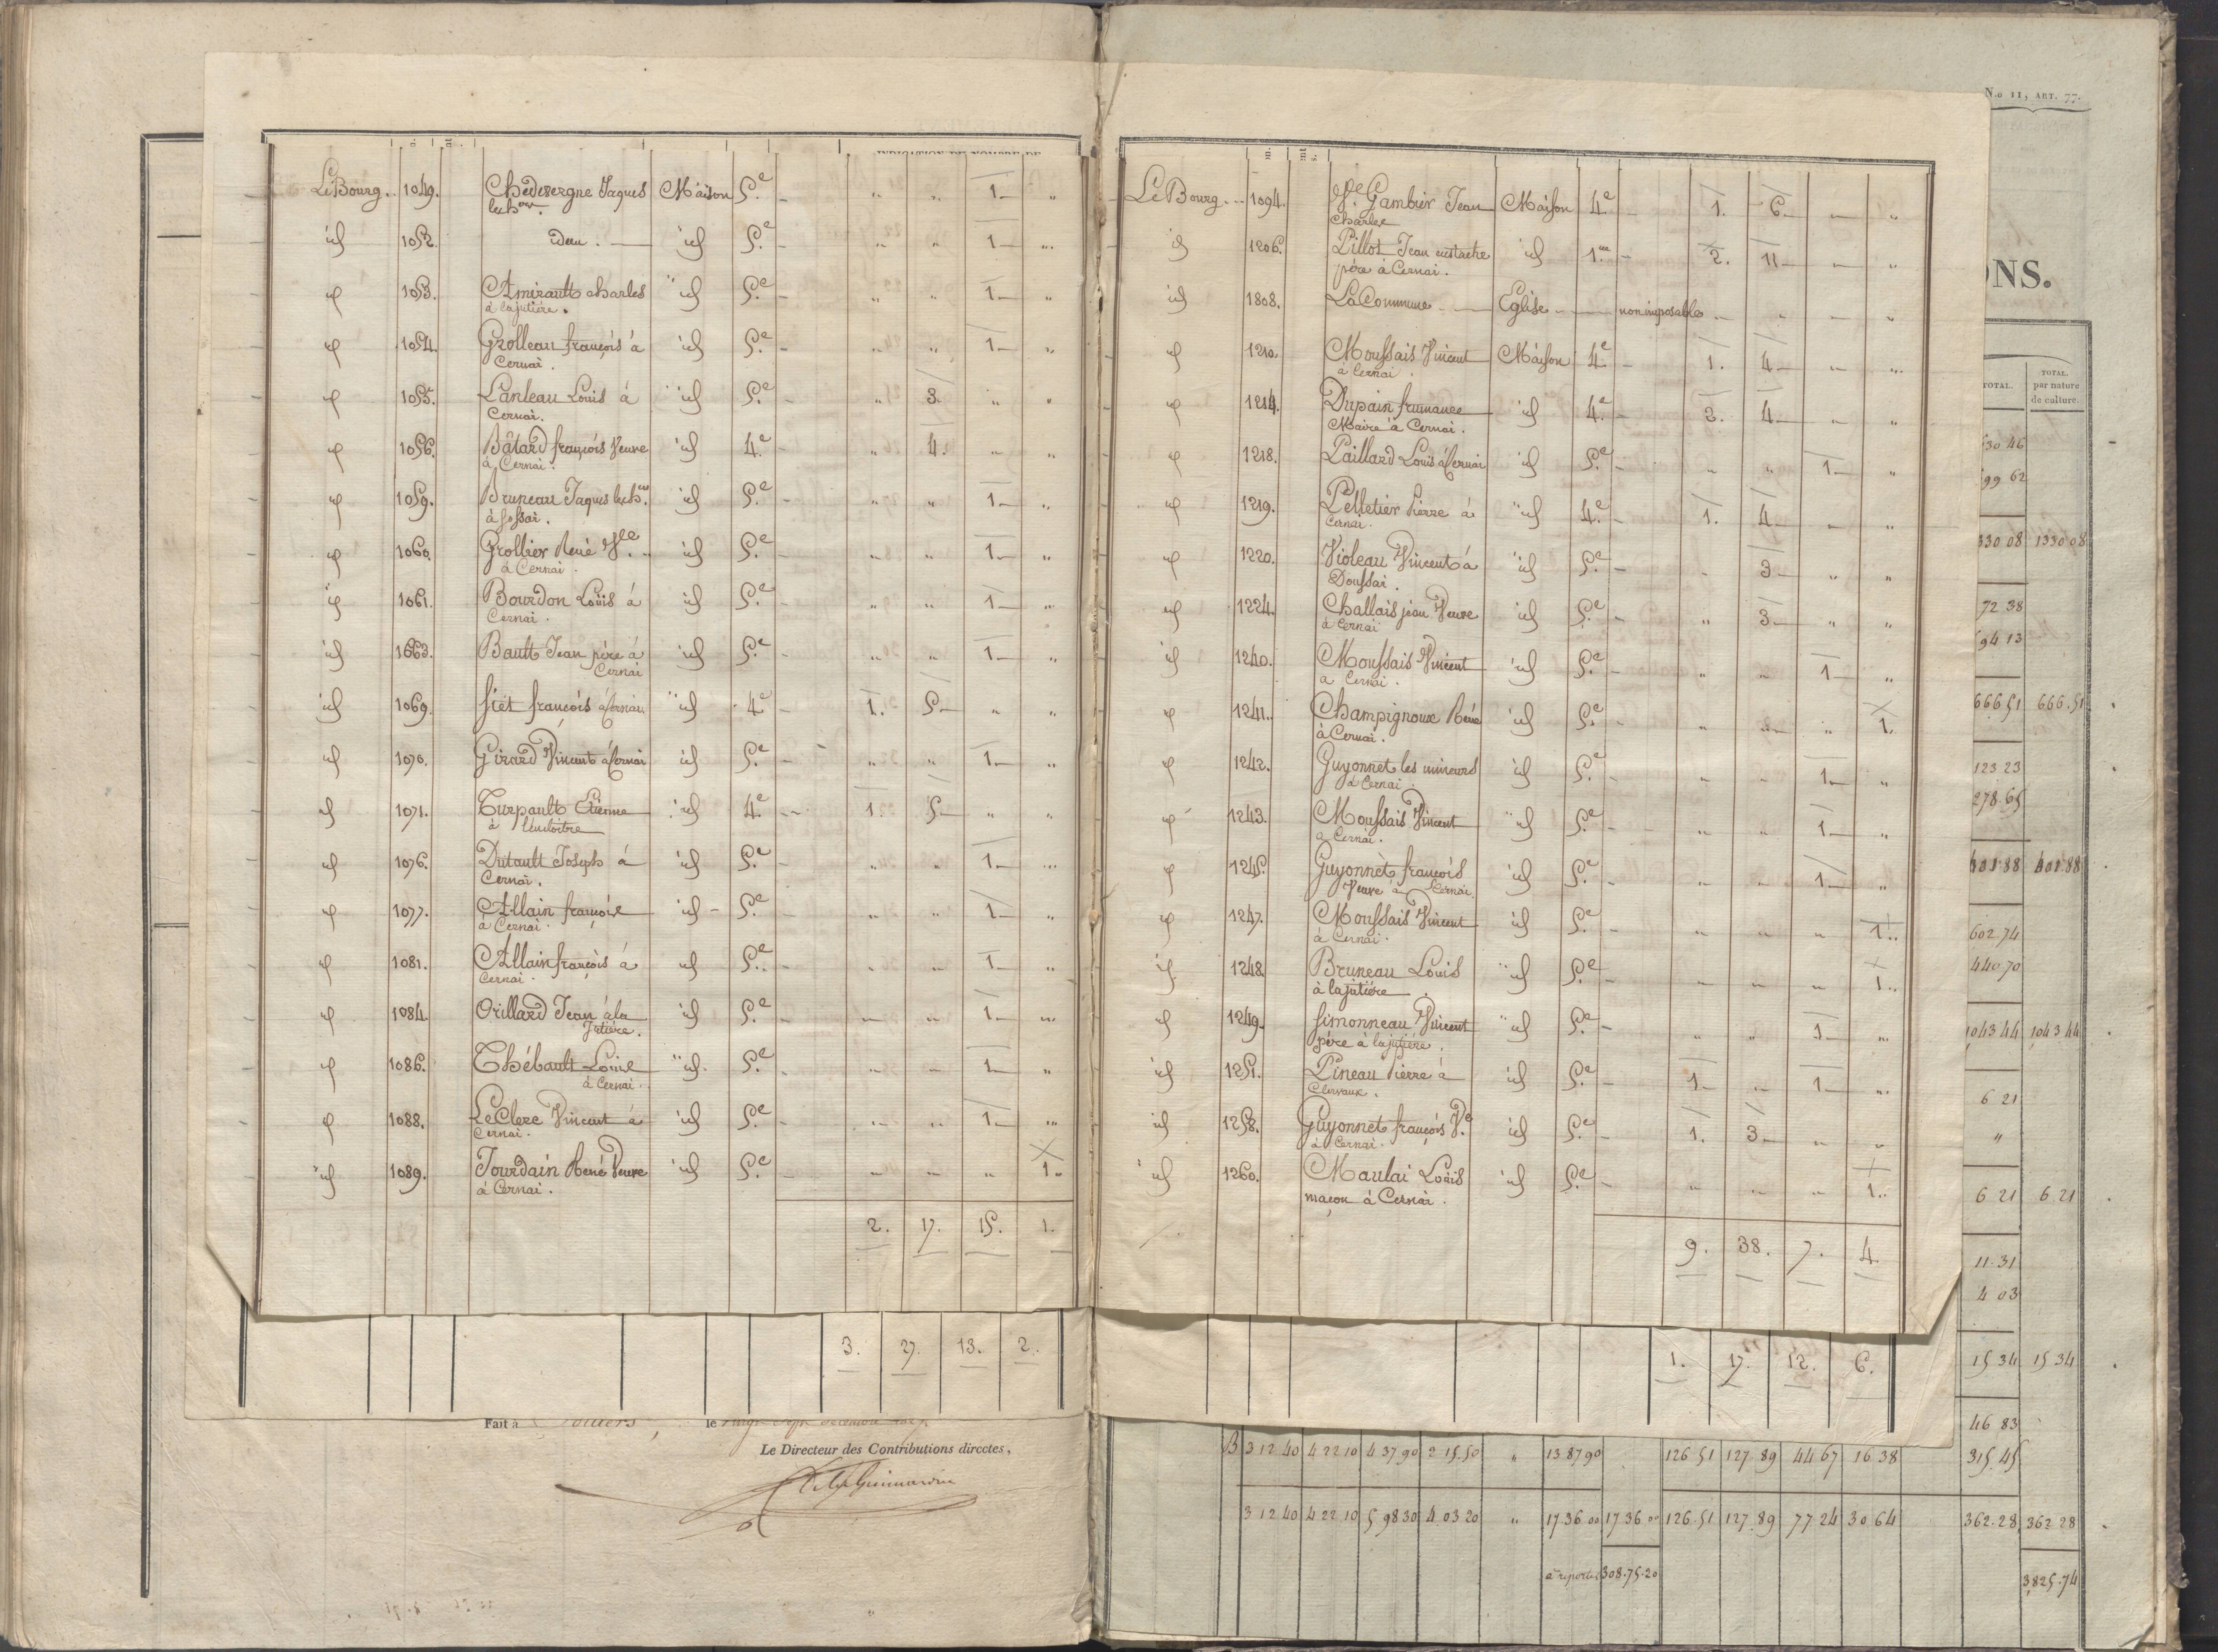 Le Bourg.. 1049. Chedevergne Jaques Maison 5.e - „ „ 1- „
id 1052. idem. — id 5.e - „ „ 1- „
id 1053. Amirault charles id 5.e - „ „ 1- „
à lajutière.
id 1054. Grolleau françois à id 5.e - „ „ 1- „
Cernai.
id 1055. Lanleau Louis à id 5.e - „ 3. „ „
Cernai.
id 1056. Bâtard françois Veuve id 4.e - „ 4. „ „
à Cernai.
id 1059. Bruneau Jaques id 5.e - „ „ 1- „
id 1060. Grollier René Vve. id 5.e - „ „ 1- „
à Cernai.
id 1061. Bourdon Louis à id 5.e - „ „ 1- „
Cernai.
id 1063. Bault Jean père à id 5.e - „ „ 1- „
Cernai
id 1069. fiet françois à Cernai id 4.e - 1. 5- „ „
id 1070. Girard Vincent à Cernai id 5.e - „ „ 1- „
id 1071. Turpault Etienne id 4.e - 1. 5- „ „
id 1076. Dutault Joseph à id 5.e - „ „ 1- „
Cernai.
id 1077. Allain françois id - 5.e „ „ 1- „
à Cernai.
id 1081. Allain françois à id 5.e - „ „ 1- „
Cernai.
id 1084. Orillard Jean à la id 5.e - „ „ 1- „
Jutière.
id 1086. Thébault Louis id. 5.e - „ „ 1- „
à Cernai.
id 1088. Le Clerc Vincent à id 5.e - „ „ 1- „
Cernai.
id 1089. Jourdain René Veuve id 5.e - „ „ „ 1„
à Cernai.
2. 17. 15. 1.
3. 27. 13. 2.
Fait à Poitiers, le
Le Directeur des Contributions directes,
N.o 11, ART. 77.
Le Bourg... 1094. Ve. Gambier Jean Maison 4.e - 1. 6- „ „
Charles
id 1206. Pillot Jean eustache id 1.re - 2. 11- „ „
père à Cernai.
id 1808. La Commune - Eglise - non imposable - „ „ „
id 1210. Moussais Vincent Maison 4.e - 1. 4- „ „
à Cernai.
id 1214. Dupain id 4.e - 2. 4- „ „
Maire à Cernai.
id 1218. Paillard Louis à Cernai id 5.e - „ „ 1- „
id 1219. Pelletier Pierre à id 4.e - 1. 4- „ „
Cernai.
id 1220. Violeau Vincent à id 5.e - „ 3- „ „
Doussai.
id 1224. Challais jean Veuve id 5.e - „ 3- „ „
à Cernai
id 1240. Moussais Vincent id 5.e - „ „ 1- „
à Cernai.
id 1241. Champignoux René id 5.e - „ „ „ 1.
à Cernai.
id 1242. Guyonnet les mineurs id 5.e - „ „ 1- „
à Cernai
id 1243. Moussais Vincent id 5.e - „ „ 1- „
à Cernai.
id 1245. Guyonnet françois id 5.e - „ „ 1- „
Veuve à Cernai.
id 1247. Moussais Vincent id 5.e - „ „ „ 1..
à Cernai.
id 1248. Bruneau Louis id 5.e - „ „ „ 1..
à lajutière.
id 1249. Simonneau Vincent id 5.e - „ „ 1- „
père à lajutière.
id 1251. Pineau Pierre à id 5.e - 1- „ 1- „
Clervaux.
id 1258. Guyonnet françois Ve id 5.e - 1. 3- „ „
à Cernai.
id 1260. Maulai Louis id 5.e - „ „ „ 1..
maçon à Cernai.
9. 38. 7. 4.
1. 17. 12. 6.
ONS.
TOTAL. TOTAL
par nature
de culture.
530 46
99 62
330 08 1330 08
72 38
94 13
666 51 666.51
123 23
278.65
401 88 401 88
602 74
440 70
1043 44 1043 44
6 21
„
6 21 6 21
11 31
4 03
15 34 15 34
46 83
B 3 12 40 4 22 10 4 37 90 2 15.50 „ 13 87 90 126 51 127.89 44 67 16 38 315.45
3 12 40 4 22 10 5 98 30 4 03 20 „ 17 36 00 17 36 00 126.51 127.89 77 24 30 64 362.28 362 28
à reporter 308.75.20 3,825.74